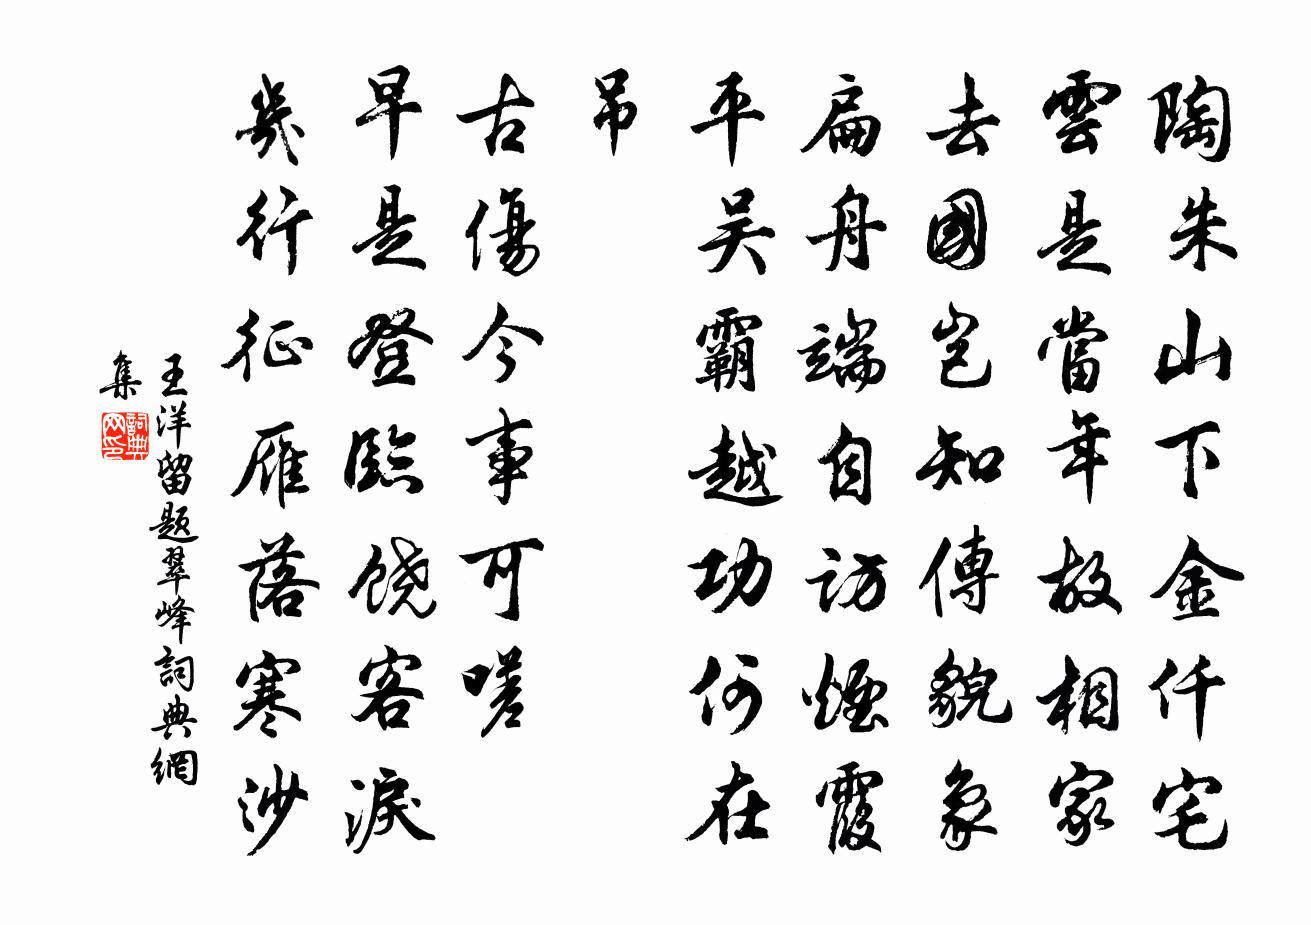 陶朱山下金仟宅
雲是當年故相家
去國豈知傳貌象
扁舟端自访煙霞
平吴霸越功何在
吊
古傷今事可嗟
早是登臨饶客淚
幾行征雁落寒沙
王洋留题翠峰詞典網
集
詞典
网印